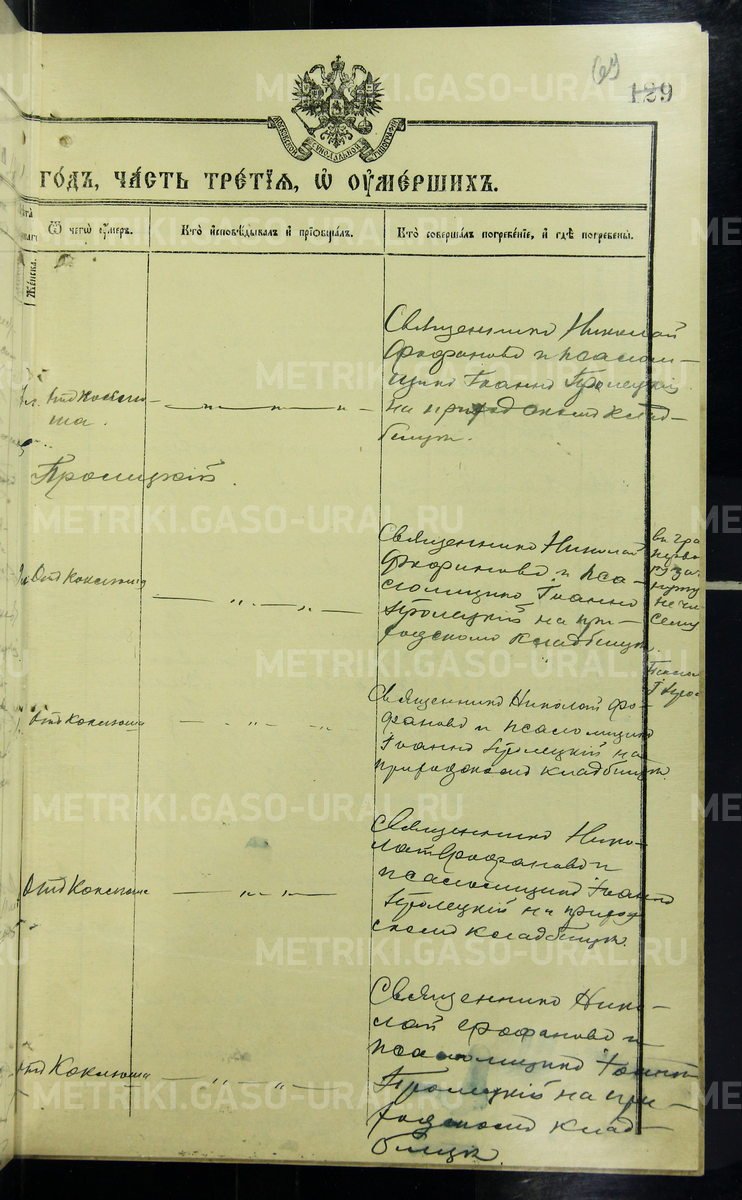 69
129
МОСКОВСКОЙ СѴНОДАЛЬНОЙ ТИПОГРАФІИ
го́дъ, ча́сть тре́тїѧ, ѡ҆ оу҆ме́ршихъ.
Ѿ чегѡ̀ оу҆́меръ.
Кто̀ и҆сповѣ́дывалъ и҆ прїѡбща́лъ.
Кто̀ соверша́лъ погребе́нїе, и҆ гдѣ̀ погребены̀.
Же́нска.
Священникъ Николай
Фофановъ и псалом-
щикъ Іоаннъ Тролецкій
на приходскомъ клад-
бищѣ.
Отъ коклю-
ша.
Священникъ Николай
Фофановъ и пса-
ломщикъ Іоаннъ
Тролецкій на при-
ходскомъ кладбищѣ.
Отъ коклюша
Священникъ Николай Фо-
фановъ и псаломщикъ
Іоаннъ Тролецкій на
приходскомъ кладбищѣ.
Отъ коклюша
Священникъ Нико-
лай Фофановъ и
псаломщикъ Іоаннъ
Тролецкій на приход-
скомъ кладбищѣ.
Отъ коклюша
Священникъ Нико-
лай Фофановъ и
псаломщикъ Іоаннъ
Тролецкій на при-
ходскомъ клад-
бищѣ.
Отъ коклюша
METRIKI.GASO-URAL.RU